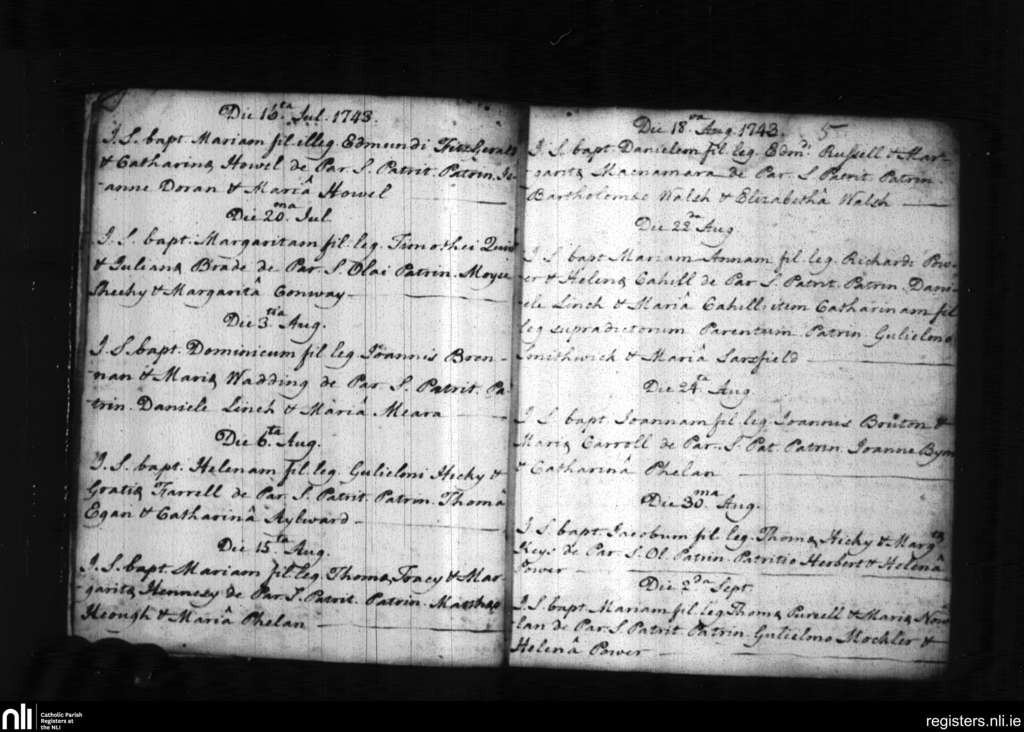 Die 16.ta Jul. 1743.
J. S. bapt. Mariam fil illeg. Edmundi FitzGerald
& Catharinæ Howel de Par. S. Patrit. Patrin. Jo-
-anne Doran & Mariâ Howel
Die 20.ma Jul.
J. S. bapt. Margaritam fil. leg. Timothei Quin
& Julianæ Brade de Par. S. Olai Patrin. Moyse
Sheehy & Margaritâ Conway
Die 3.tia Aug.
J. S. bapt. Dominicum fil leg Joannis Bren-
nan & Mariæ Wadding de Par S. Patrit. Pa-
trin. Daniele Linch & Mariâ Meara
Die 6.ta Aug.
J. S. bapt. Helenam fil leg. Gulielmi Hicky &
Gratiæ Farrell de Par S. Patrit. Patrin. Thomâ
Egan & Catharinâ Aylward
Die 15.ta Aug.
J. S. bapt. Mariam fil leg. Thomæ Tracy & Mar-
garitæ Hennesy de Par S. Patrit. Patrin. Matthæo
Keough & Mariâ Phelan
Die 18.va Aug. 1743. 5
J. S. bapt. Danielem fil leg. Edm.di Russell & Mar-
-garitæ Macnamara de Par. S Patrit Patrin.
Bartholomæo Walsh & Elizabethâ Walsh
Die 22.a Aug
J. S bapt Mariam Annam fil leg. Richardi Pow-
er & Helenæ Cahill de Par S. Patrit. Patrin. Dani-
ele Linch & Mariâ Cahill; item Catharinam fil
leg supradictorum Parentum Patrin. Gulielmo
Smithwick & Mariâ Sarsfield
Die 24.ta Aug.
J S bapt Joannam fil leg. Joannis Bruton &
Mariæ Carroll de Par. S. Pat. Patrin. Joanne Byrn
& Catharinâ Phelan
Die 30.ma Aug.
J S. bapt. Jacobum fil leg. Thomæ Hicky & Marg.tæ
Keys de Par. S. Ol. Patrin. Patritio Herbert & Helenâ
Power
Die 2.da Sept.
J. S. bapt Mariam fil leg Thomæ Purcell & Mariæ Now-
lan de Par. S Patrit Patrin. Gulielmo Mockler &
Helenâ Power
nli
Catholic Parish
Registers at
the NLI
registers.nli.ie